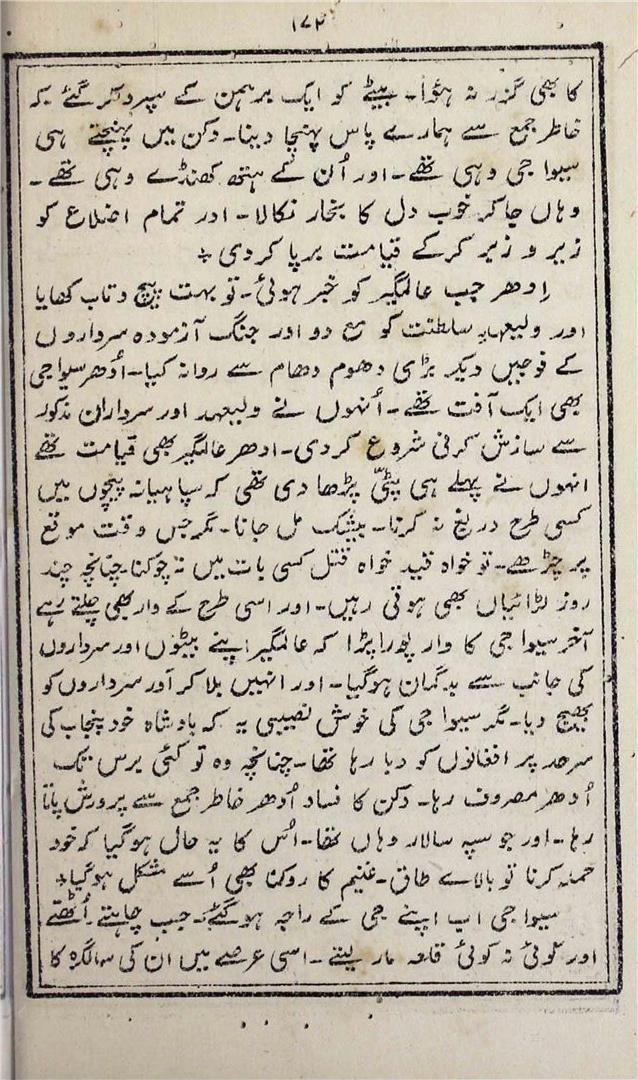 ۱۷۴
کا بھی گزر نہ ہؤا۔ بیٹے کو ایک برہمن کے سپرد کر گئے کہ
خاطر جمع سے ہمارے پاس پہنچا دینا۔ دکن میں پہنچتے ہی
سیوا جی وہی تھے۔ اور اُن کے ہتھ کھنڈے وہی تھے۔
وہاں جا کر خوب دل کا بخار نکالا۔ اور تمام اضلاع کو
زیر و زبر کر کے قیامت برپا کر دی +
اِدھر جب عالمگیر کو خبر ہوئی۔ تو بہت پیچ و تاب کھایا
اور ولیعہد سلطنت کو مع دو اور جنگ آزمودہ سرداروں
کے فوجیں دیکر بڑی دھوم دھام سے روانہ کیا۔ اُدھر سیوا جی
بھی ایک آفت تھے۔ اُنہوں نے ولیعہد اور سرداران مذکور
سے سازش کرنی شروع کر دی۔ ادھر عالمگیر بھی قیامت تھے
انہوں نے پہلے ہی پٹّی پڑھا دی تھی کہ سپاہیانہ پیچوں میں
کسی طرح دریغ نہ کرنا۔ بیشک مل جانا۔ مگر جس وقت موقع
پر چڑھے۔ تو خواہ قید خواہ قتل کسی بات میں نہ چوکنا۔ چنانچہ چند
روز لڑائیاں بھی ہوتی رہیں۔ اور اسی طرح کے وار بھی چلتے رہے
آخر سیوا جی کا وار پورا پڑا کہ عالمگیر اپنے بیٹوں اور سرداروں
کی جانب سے بدگمان ہوگیا۔ اور انہیں بلا کر اَور سرداروں کو
بھیج دیا۔ مگر سیوا جی کی خوش نصیبی یہ کہ بادشاہ خود پنجاب کی
سرحد پر افغانوں کو دبا رہا تھا۔ چنانچہ وہ تو کئی برس تک
اُدھر مصروف رہا۔ دکن کا فساد اُدھر خاطر جمع سے پرورش پاتا
رہا۔ اور جو سپہ سالار وہاں تھا۔ اُس کا یہ حال ہوگیا کہ خود
حملہ کرنا تو بالاے طاق۔ غنیم کا روکنا بھی اُسے مشکل ہوگیا +
سیوا جی اب اپنے جی کے راجہ ہو گئے۔ جب چاہتے اُٹھتے
اور کوئی نہ کوئی قلعہ مار لیتے۔ اسی عرصے میں ان کی سالگرہ کا